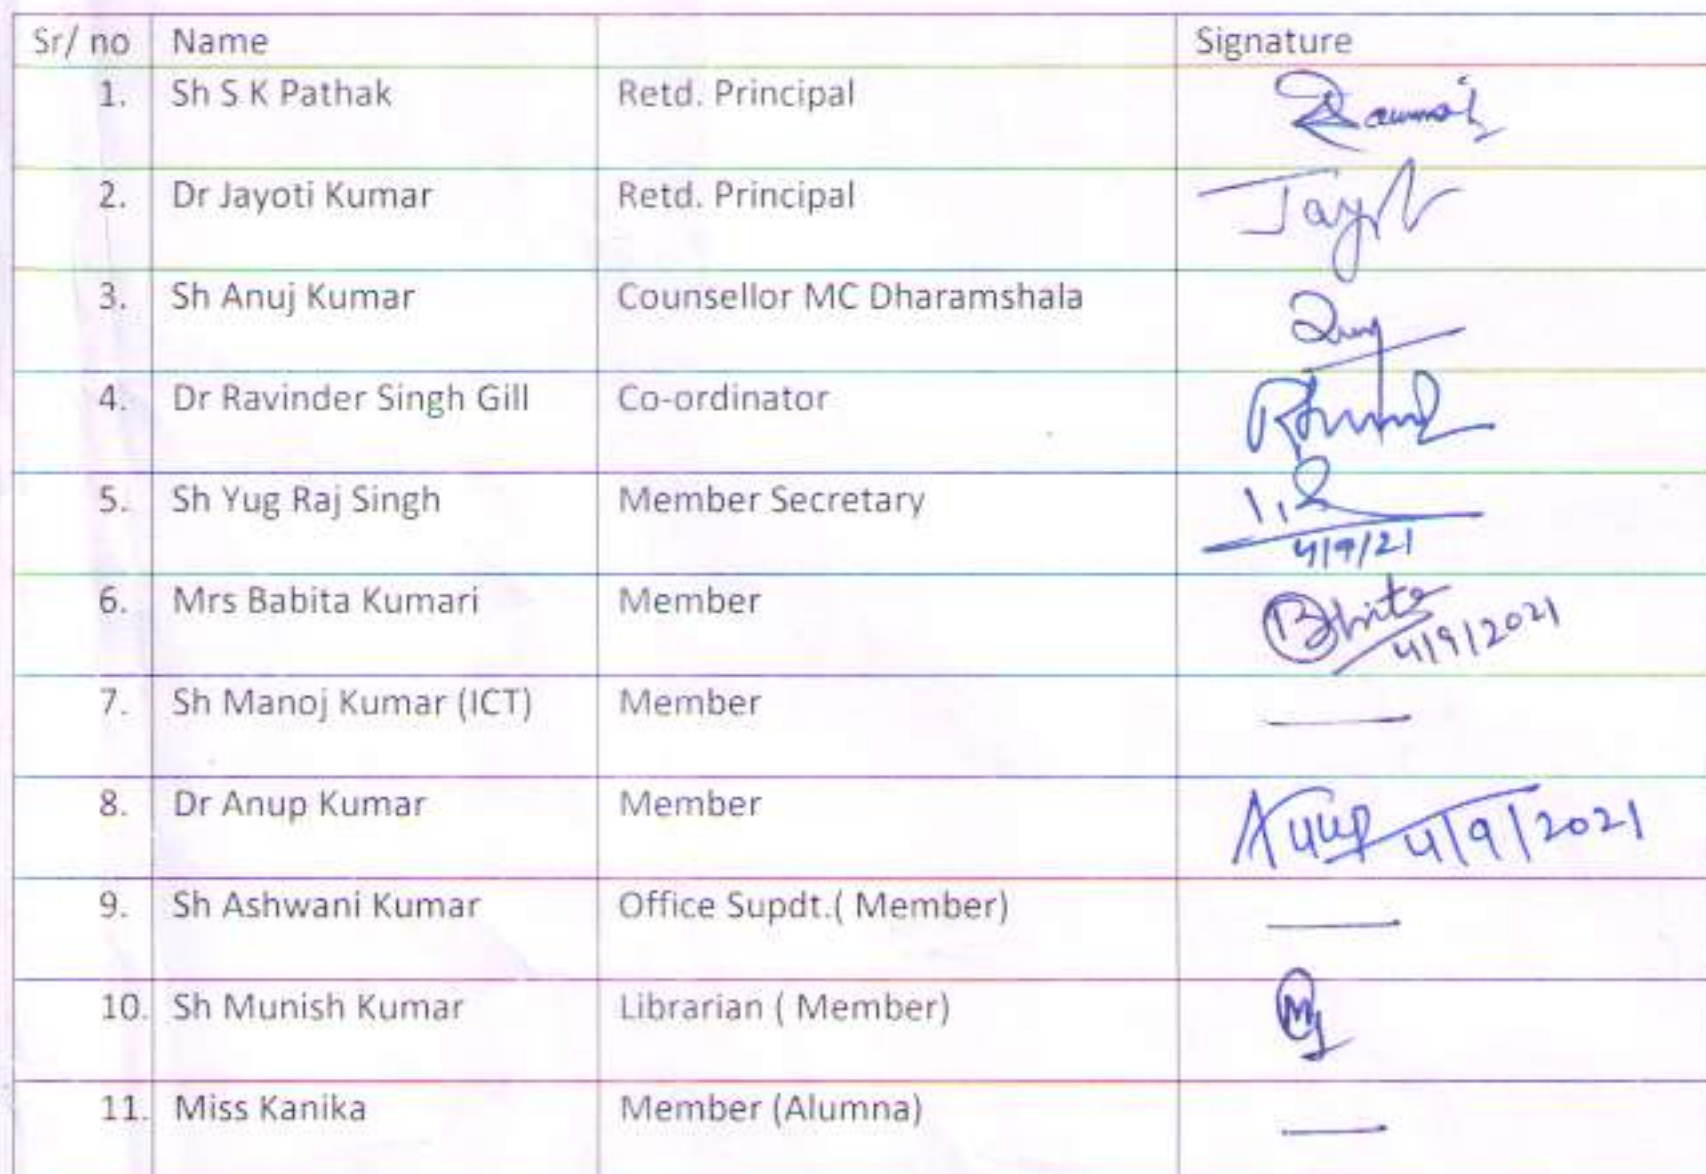 Sr/ no Name Signature
1. Sh S K Pathak Retd. Principal
2. Dr Jayoti Kumar Retd. Principal
3. Sh Anuj Kumar Counsellor MC Dharamshala
4. Dr Ravinder Singh Gill Co-ordinator
5. Sh Yug Raj Singh Member Secretary
4/9/21
6. Mrs Babita Kumari Member
4/9/2021
7. Sh Manoj Kumar (ICT) Member —
8. Dr Anup Kumar Member Anup 4/9/2021
9. Sh Ashwani Kumar Office Supdt.( Member) —
10. Sh Munish Kumar Librarian ( Member)
11. Miss Kanika Member (Alumna) —